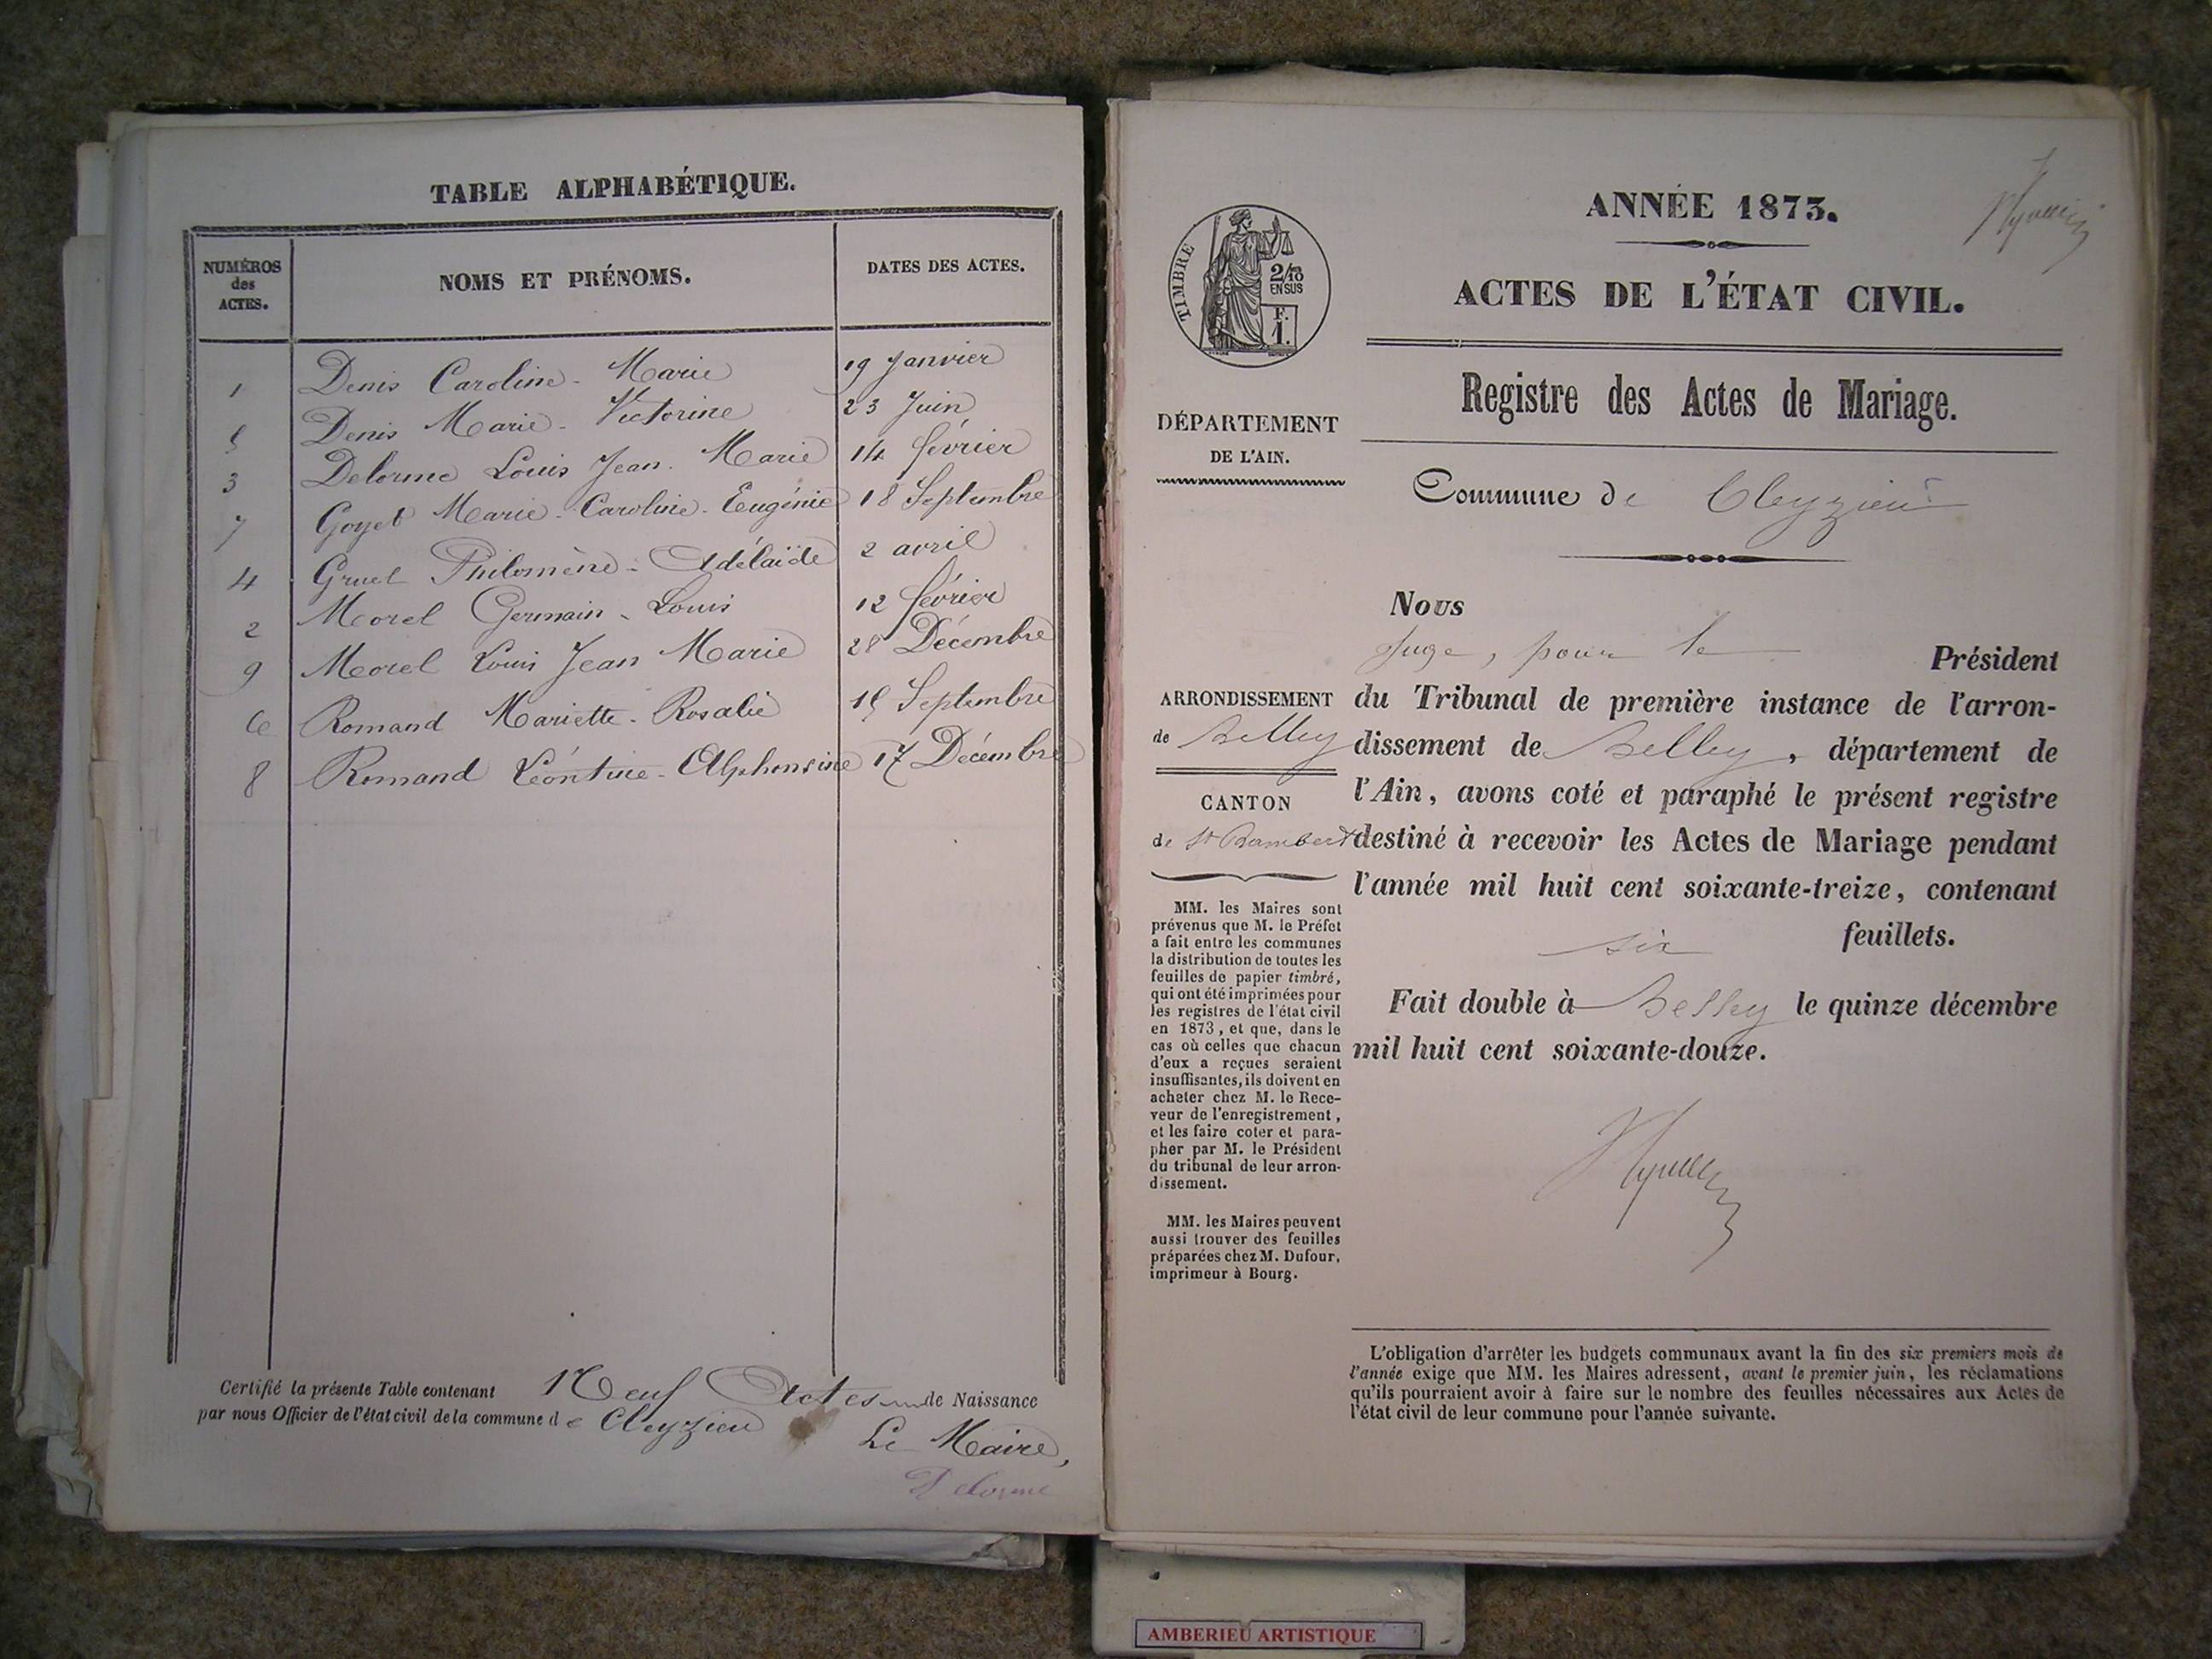 TABLE ALPHABÉTIQUE.
NUMÉROS
des
ACTES.
NOMS ET PRÉNOMS.
DATES DES ACTES.
1 Denis Caroline - Marie 19 Janvier
5 Denis Marie - Victorine 23 Juin
3 Delorme Louis Jean Marie 14 février
7 Goyet Marie - Caroline - Eugénie 18 Septembre
4 Gruel Philomène - Adélaïde 2 avril
2 Morel Germain - Louis 12 février
9 Morel Louis Jean Marie 28 Décembre
6 Romand Mariette - Rosalie 15 Septembre
8 Romand Léontine - Alphonsine 17 Décembre
Certifié la présente Table contenant Neuf Actes de Naissance
par nous Officier de l'état civil de la commune de Cleyzieu
Le Maire,
Delorme
ANNÉE 1873.
ACTES DE L'ÉTAT CIVIL.
TIMBRE
2/10
EN SUS
F.
1.
Registre des Actes de Mariage.
DÉPARTEMENT
DE L'AIN.
Commune de Cleyzieu
Nous
Juge, pour le Président
du Tribunal de première instance de l'arron-
dissement de Belley, département de
l'Ain, avons coté et paraphé le présent registre
destiné à recevoir les Actes de Mariage pendant
l'année mil huit cent soixante-treize, contenant
six feuillets.
Fait double à Belley le quinze décembre
mil huit cent soixante-douze.
ARRONDISSEMENT
de Belley
CANTON
de St Rambert
MM. les Maires sont
prévenus que M. le Préfet
a fait entre les communes
la distribution de toutes les
feuilles de papier timbré,
qui ont été imprimées pour
les registres de l'état civil
en 1873, et que, dans le
cas où celles que chacun
d'eux a reçues seraient
insuffisantes, ils doivent en
acheter chez M. le Rece-
veur de l'enregistrement,
et les faire coter et para-
pher par M. le Président
du tribunal de leur arron-
dissement.
MM. les Maires peuvent
aussi trouver des feuilles
préparées chez M. Dufour,
imprimeur à Bourg.
L'obligation d'arrêter les budgets communaux avant la fin des six premiers mois de
l'année exige que MM. les Maires adressent, avant le premier juin, les réclamations
qu'ils pourraient avoir à faire sur le nombre des feuilles nécessaires aux Actes de
l'état civil de leur commune pour l'année suivante.
AMBERIEU ARTISTIQUE